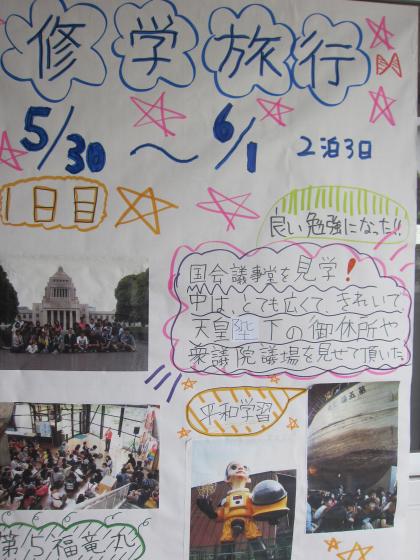 修学旅行
5/30 〜 6/1 2泊3日
1日目
良い勉強になった!!
国会議事堂を見学!
中は、とても広くて、きれいで
天皇陛下の御休所や
衆議院議場を見せて頂いた
平和学習
第五福
第15福竜丸